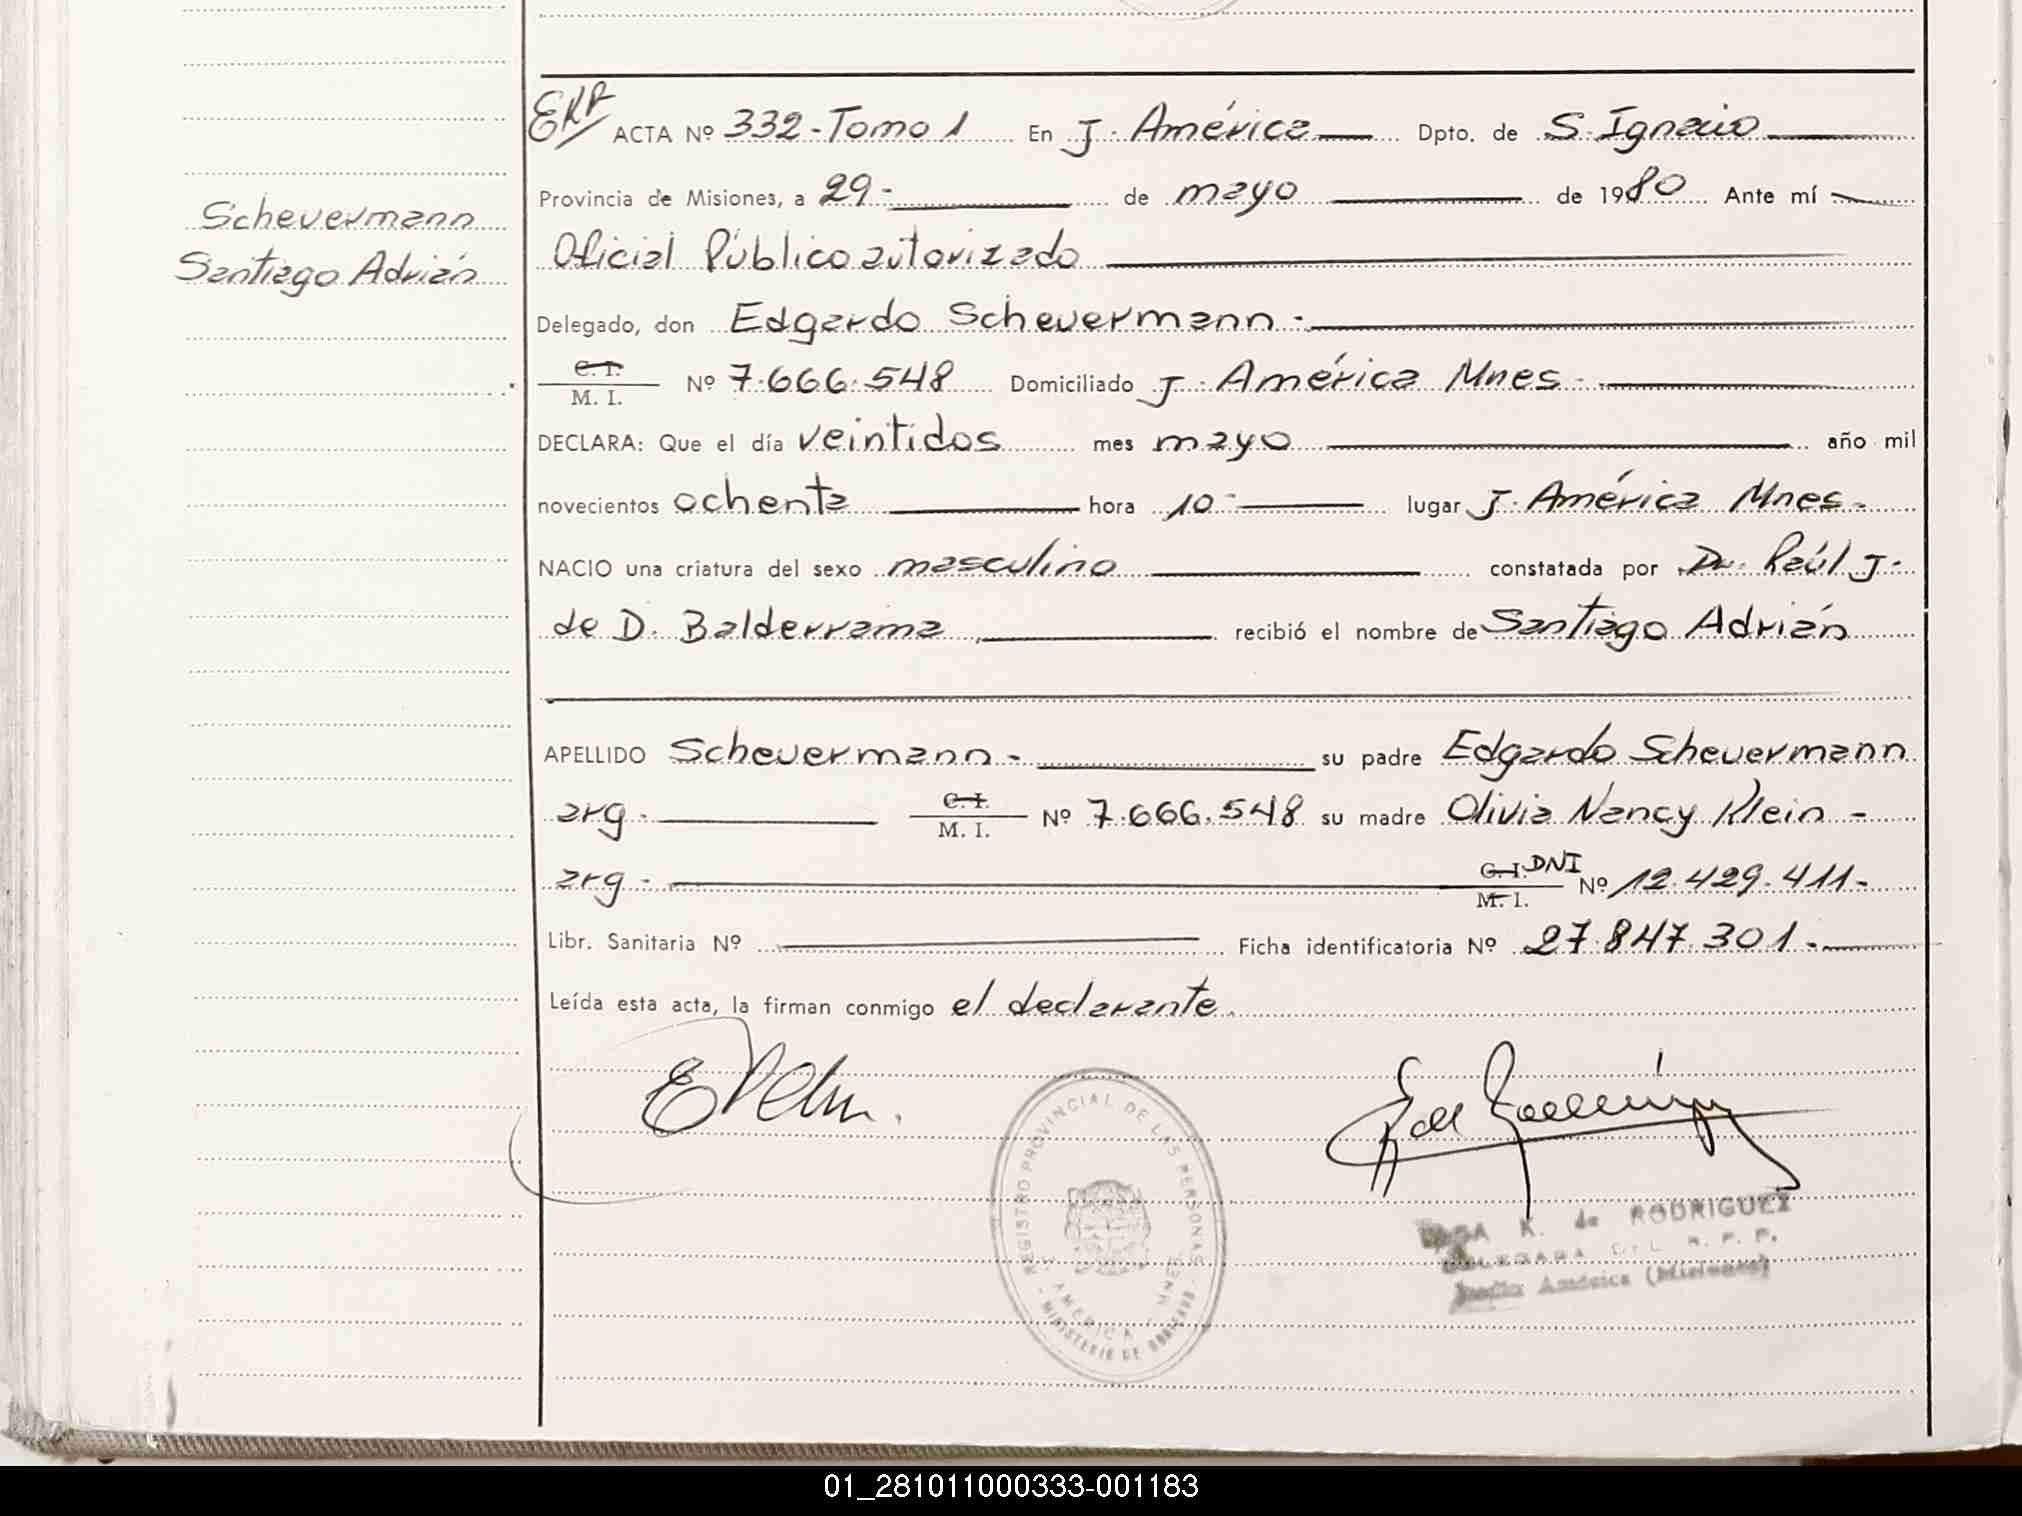 ERA
ACTA Nº 332-Tomo 1 En J. América Dpto. de S. Ignacio
Provincia de Misiones, a 29- de mayo de 1980 Ante mí
Scheuermann
Santiago Adrián
Oficial Público autorizado
Delegado, don Edgardo Scheuermann -
C. I.
M. I. Nº 7.666.548 Domiciliado J. América Mnes -
DECLARA: Que el día veintidos mes mayo año mil
novecientos ochenta hora 10- lugar J. América Mnes -
NACIO una criatura del sexo masculino constatada por Dr. Raúl J.
de D. Balderrama recibió el nombre de Santiago Adrián
APELLIDO Scheuermann - su padre Edgardo Scheuermann
arg - C. I.
M. I. Nº 7.666.548 su madre Olivia Nancy Klein -
arg - C. I. DNI
M. I. Nº 12.429.411-
Libr. Sanitaria Nº Ficha identificatoria Nº 27.847.301-
Leída esta acta, la firman conmigo el declarante.
REGISTRO PROVINCIAL DE LAS PERSONAS
AMERICA MNES.
- MINISTERIO DE GOBIERNO -
K. de RODRIGUEZ
DELEGADA DEL R. P. P.
Jardín América (Misiones)
01_281011000333-001183